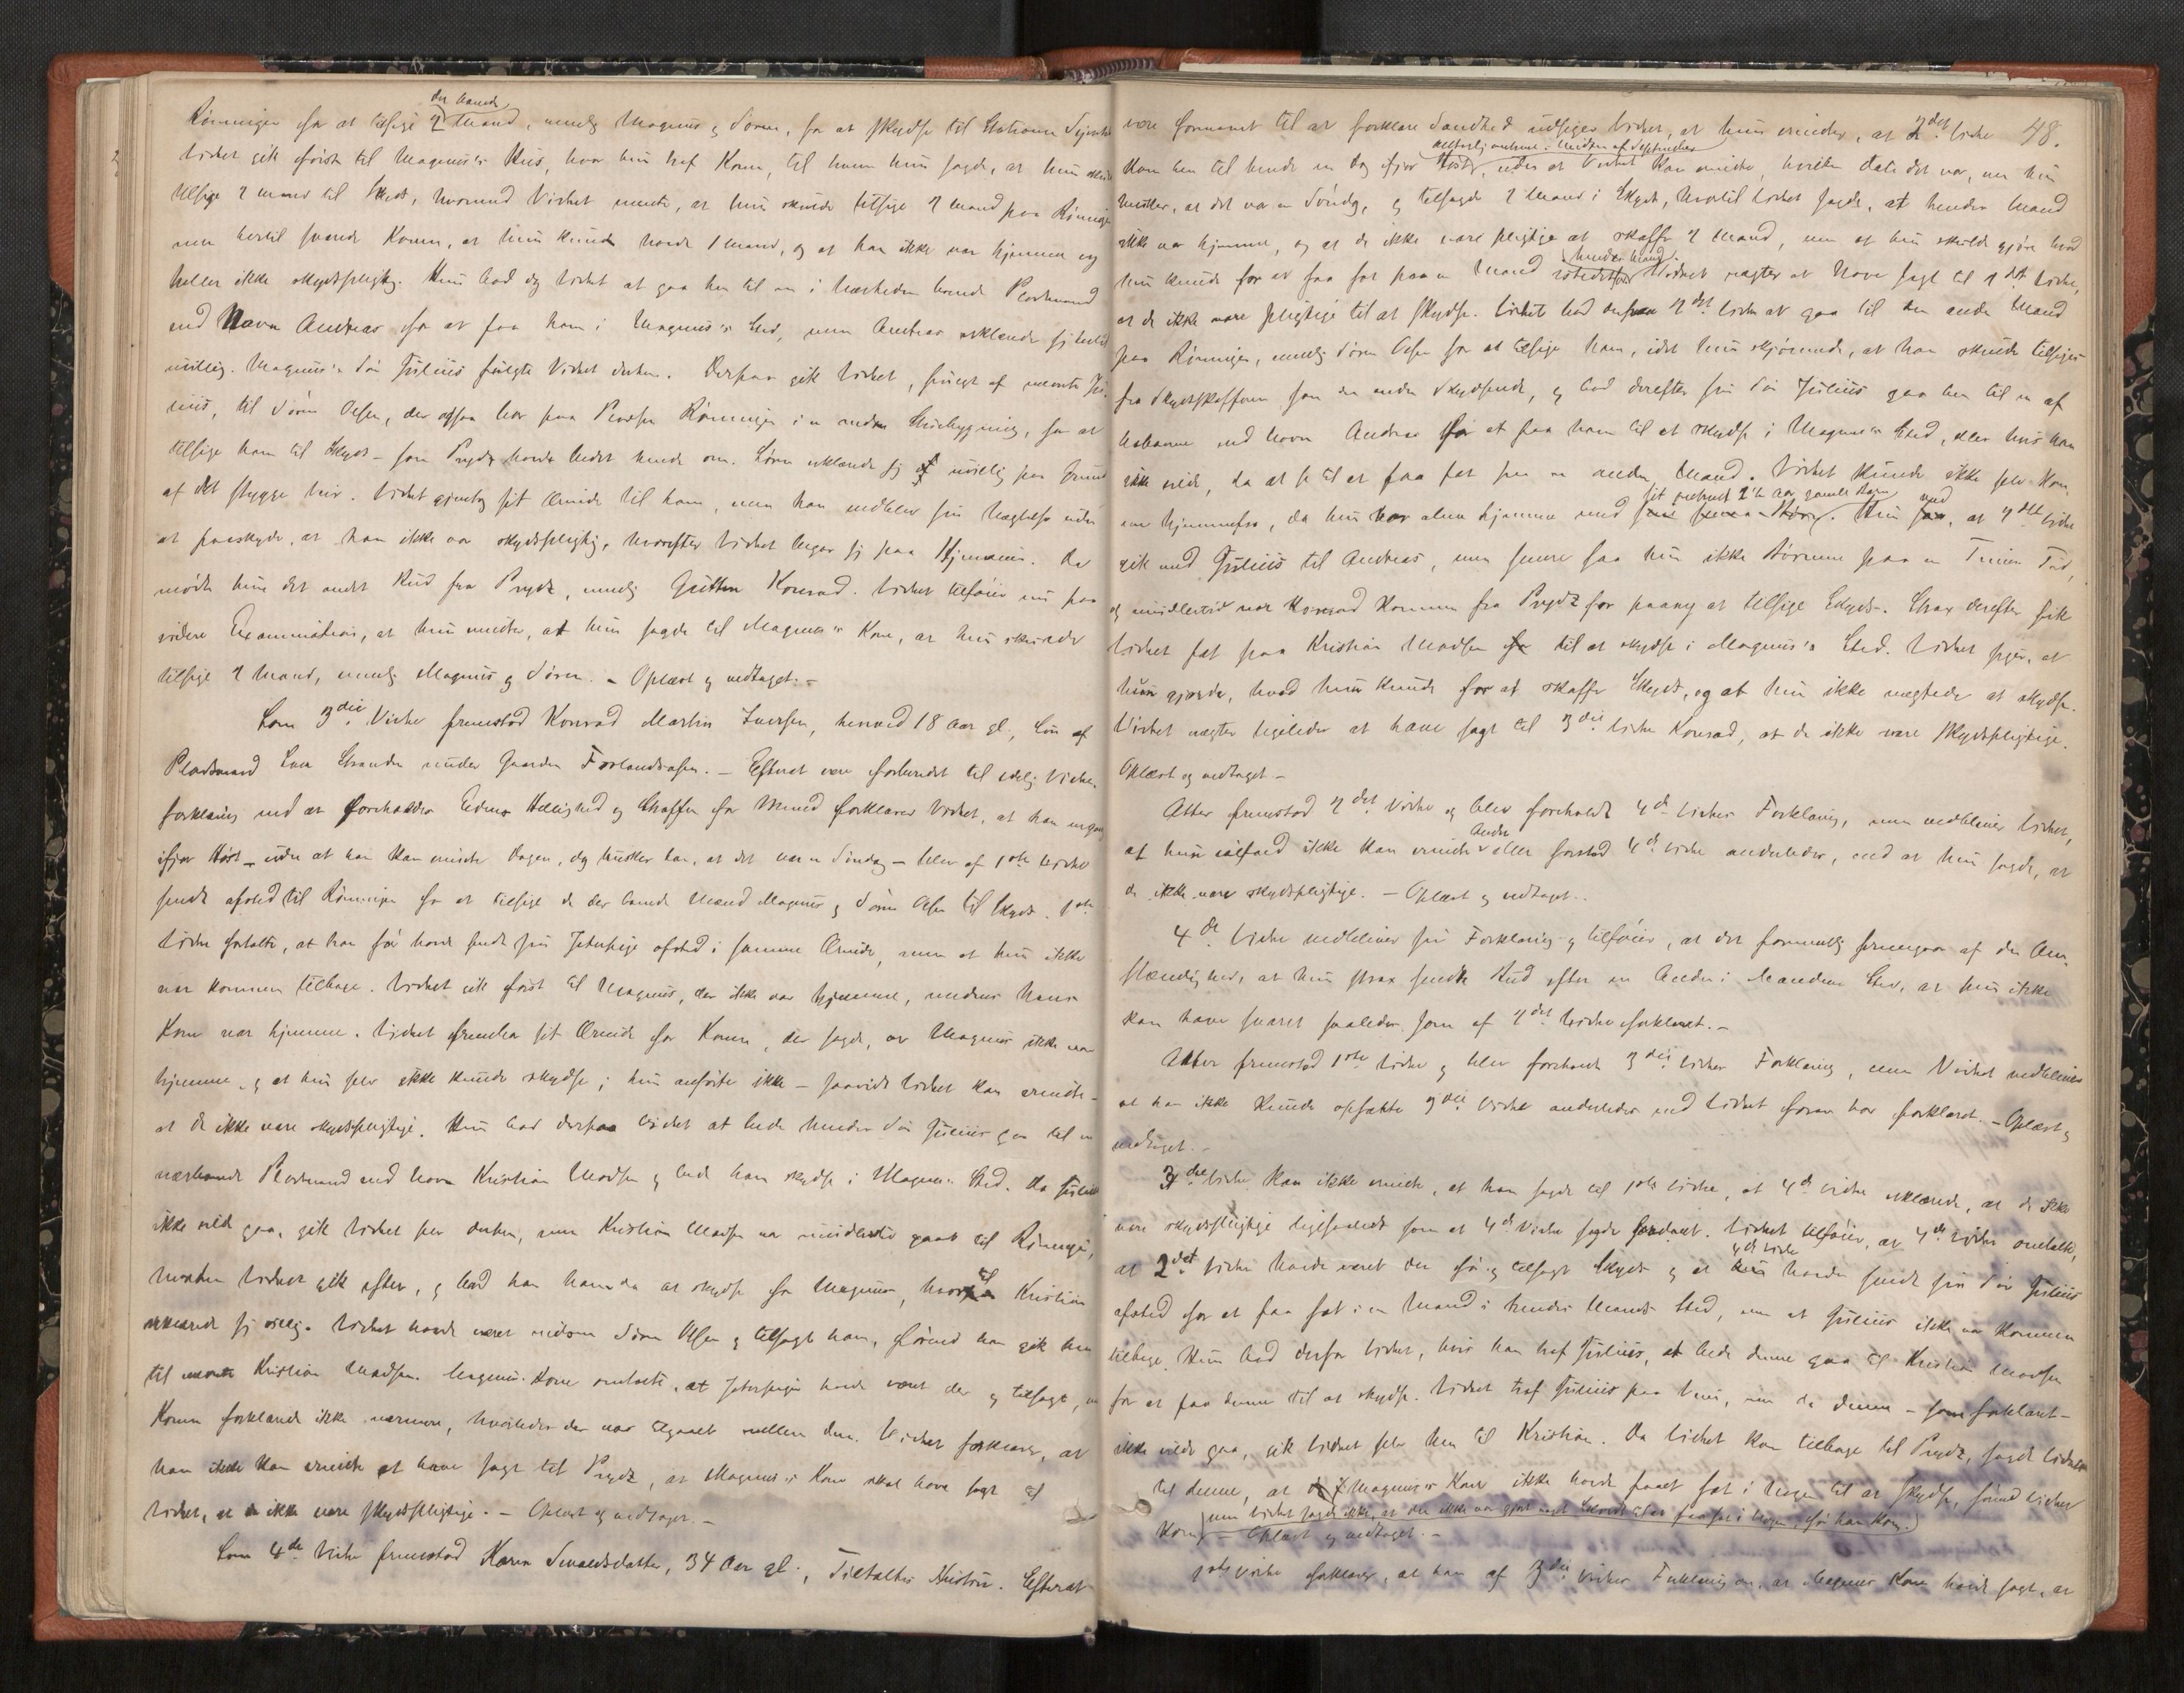 der boende
Rønningen for at tilsige 2 Mand, nemlig Magnus og Søren, for at skydse til Stationen
Vidnet gik først til Magnus's Hus, hvor hun traf Konen, til hvem hun sagde, at hun skulde
tilsige 2 Mand til Skyds, hvormed Vidnet mente, at hun skulde tilsige 2 Mand paa Rønningen
men hertil svarede Konen, at hun kun havde 1 Mand, og at han ikke var hjemme og
heller ikke skydspligtig. Hun bad dog Vidnet at gaa hen til en i Nærheden boende Pladsmand
ved Navn Andreas for at faa ham i Magnus's Sted, men Andreas erklærede sig hertil
uvillig. Magnus's Søn Julius fulgte Vidnet derhen. Derpaa gik Vidnet, fulgt af nævnte Ju-
lius, til Søren Olsen, der ogsaa bor paa Pladsen Rønningen i en anden Husbygning, for at
tilsige ham til Skyds - som Prydz havde budet hende om. Søren erklærede sig uvillig paa Grund
af det stygge Veir. Vidnet gjentog sit Ærinde til ham, men han vedblev sin Nægtelse uden
at paaskyde, at han ikke var skydspligtig, hvorefter Vidnet begav sig paa Hjemveien. Da
mødte hun det andet Bud fra Prydz, nemlig Gutten Konrad. Vidnet tilføier nu paa
videre Examination, at hun mente, at hun sagde til Magnus's Kone, at hun skulde
tilsige 2 Mand, nemlig Magnus og Søren. - Oplæst og vedtaget. -
Som 3die Vidne fremstod Konrad Martin Iversen, henved 18 Aar gl., Søn af
Pladsmand Iver Stranden under Gaarden Forlandsaasen. - Efterat være forberedet til edelig Vidne-
forklaring ved at foreholdes Edens Hellighed og Straffen for Mened forklarer Vidnet, at han engang
ifjor Høst - uden at han kan erindre Dagen, dog husker han, at det var en Søndag - blev af 1ste Vidne
sendt afsted til Rønningen for at tilsige de der boende Mænd Magnus og Søren Olsen til Skyds. 1ste
Vidne fortalte, at han før havde sendt sin Jenteskige afsted i samme Ærinde, men at hun ikke
var kommen tilbage. Vidnet gik først til Magnus, der ikke var hjemme, medens hans
Kone var hjemme. Vidnet frembar sit Ærinde for Konen, der sagde, at Magnus ikke var
hjemme, og at hun selv ikke kunde skydse; hun anførte ikke - saavidt Vidnet kan erindre -
at de ikke vare skydspligtige. Hun bad derpaa Vidnet at bede hendes Søn Julius gaa til en
nærboende Pladsmand ved Navn Kristian Madsen og bede ham skydse i Magnus's Sted. Da Julius
ikke vilde gaa, gik Vidnet selv derhen, men Kristian Madsen var imidlertid gaaet til Rønningen,
hvorhen Vidnet gik efter, og bad han ham da at skydse for Magnus, hvortil Kristian
erklærede sig villig. Vidnet havde været indom Søren Olsen og tilsagt ham, førend han gik hen
til nævnte Kristian Madsen. Magnus's Kone omtalte, at Jentepigen havde været der og tilsagt, men
Konen forklarede ikke nærmere, hvorledes der var tilgaaet mellem dem. Vidnet forklarer, at
han ikke kan erindre at have sagt til Prydz, at Magnus's Kone skal have sagt til
Vidnet, at de ikke vare skydspligtige. - Oplæst og vedtaget. -
Som 4de Vidne fremstod Karen Sivaldsdatter, 34 Aar gl., Tiltaltes Hustru. Efterat
48.
være formanet til at forklare Sandhed udsiger Vidnet, at hun erindrer, at 2det Vidne
antagelig omtrent i Midten af September
kom hen til hende en Dag ifjor Høst, uden at Vidnet kan erindre, hvilken Dato det var, men hun
husker, at det var en Søndag, og tilsagde 2 Mand i Skyds, hvortil Vidnet sagde, at hendes Mand
ikke var hjemme, og at de ikke vare pligtige at skaffe 2 Mand, men at hun skulde gjøre hvad
hendes Mand.
hun kunde for at faa fat paa en Mand istedetfor Vidnet nægter at have sagt til 2det Vidne,
at de ikke vare pligtige til at skydse. Vidnet bad derpaa 2det Vidne at gaa til den anden Mand
paa Rønningen, nemlig Søren Olsen for at tilsige ham, idet hun skjønnede, at han skulde tilsiges
fra Skydsskafferen som den anden Skydsende, og bad derefter sin Søn Julius gaa hen til en af
Naboerne ved Navn Andreas for at faa ham til at skydse i Magnus's Sted, eller hvis han
ikke vilde, da at se til at faa fat paa en anden Mand. Vidnet kunde ikke selv kom-
sit omtrent 2 1/2 Aar gamle Barn ved
me hjemmefra, da hun var alene hjemme med . Hun , at 2det Vidne
gik med Julius til Andreas, men senere saa hun ikke Børnene paa en Times Tid,
og imidlertid var Konrad kommen fra Prydz for paany at tilsige Skyds. Strax derefter fik
Vidnet fat paa Kristian Madsen til at skydse i Magnus's Sted. Vidnet siger, at
hun gjorde, hvad hun kunde for at skaffe Skyds, og at hun ikke nægtede at skydse.
Vidnet nægter ligeledes at have sagt til 3die Vidne Konrad, at de ikke vare skydspligtige.
Oplæst og vedtaget. -
Atter fremstod 2det Vidne og blev foreholdt 4de Vidnes Forklaring, men vedbliver Vidnet,
Andet
at hun ialfald ikke kan erindre eller forstod 4de Vidne anderledes, end at hun sagde, at
de ikke vare skydspligtige. - Oplæst og vedtaget. -
4de Vidne vedbliver sin Forklaring og tilføier, at det formentlig fremgaar af den Om-
stændighed, at hun strax sendte Bud efter en Anden i Mandens Sted, at hun ikke
kan have svaret saaledes som af 2det Vidne forklaret. -
Atter fremstod 1ste Vidne og blev foreholdt 3die Vidnes Forklaring, men Vidnet vedbliver
at han ikke kunde opfatte 3die Vidne anderledes end Vidnet foran har forklaret. - Oplæst og
vedtaget. -
3die Vidne kan ikke erindre, at han sagde til 1ste Vidne, at 4de Vidne erklærede, at de ikke
vare skydspligtige ligesaalidt som at 4de Vidne sagde saadant. Vidnet tilføier, at 4de Vidne omtalte,
4de Vidne
at 2det Vidne havde været der før og tilsagt Skyds og at havde sendt sin Søn Julius
afsted for at faa fat i en Mand i hendes Mands Sted, men at Julius ikke var kommen
tilbage. Hun bad derfor Vidnet, hvis han traf Julius, at bede denne gaa til Kristian Madsen
for at faa denne til at skydse. Vidnet traf Julius paa Veien, men da denne - som forklaret -
ikke vilde gaa, gik Vidnet selv hen til Kristian. Da Vidnet kom tilbage til Prydz, sagde Vidnet
til denne, at Magnus's Kone ikke havde faaet fat i Nogen til at skydse, førend Vidnet
men Vidnet sagde ikke, at der ikke var gjort noget Skridt til at faa fat i Nogen, før han kom.
kom. - Oplæst og vedtaget. -
1ste Vidne forklarer, at han af 3die Vidnes Forklaring om, at Magnus's Kone havde sagt, at